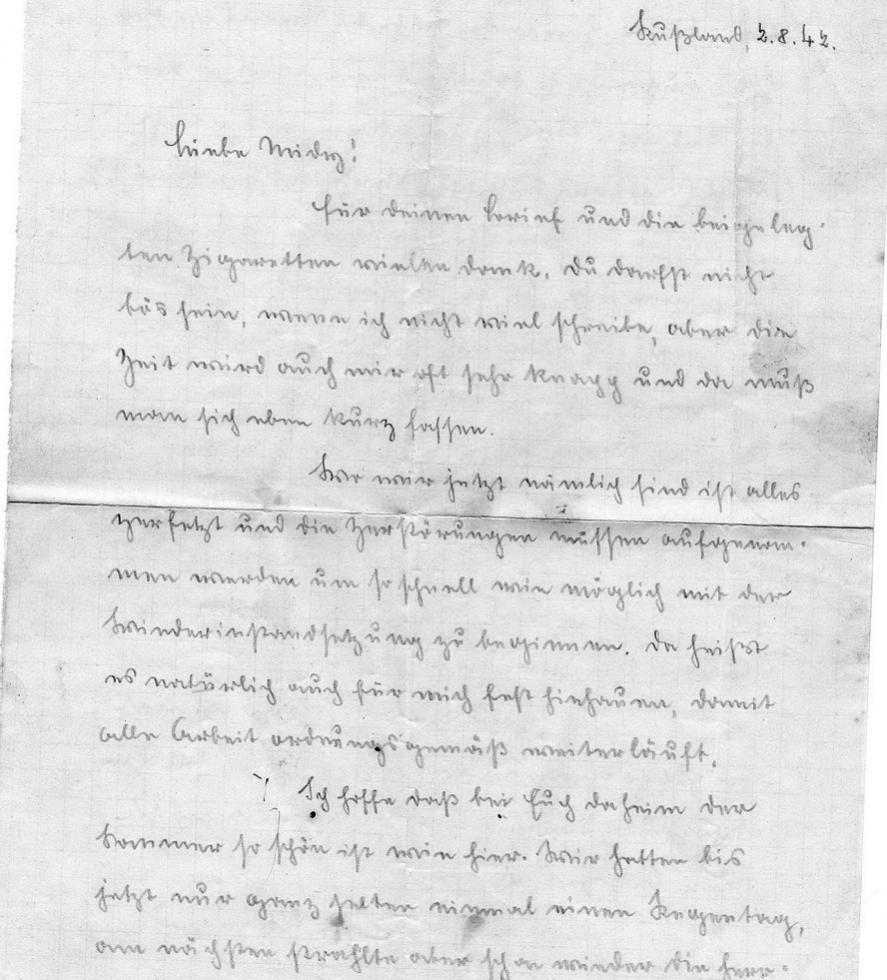 Rußland, 2.8.42.
Liebe Midy!
Für Deinen Brief und die beigeleg-
ten Zigaretten vielen Dank. Du darfst nicht
bös sein, wenn ich nicht viel schreibe, aber die
Zeit wird auch mir oft sehr knapp und da muß
man sich eben kurz fassen.
Wo wir jetzt nämlich sind ist alles
zerfetzt und die Zerstörungen müssen aufgenom-
men werden um so schnell wie möglich mit der
Wiederinstandsetzung zu beginnen. Da heißt
es natürlich auch für mich fest hinhauen, damit
alle Arbeit ordnungsgemäß weiterläuft.
Ich hoffe daß bei Euch daheim der
Sommer so schön ist wie hier. Wir hatten bis
jetzt nur ganz selten einmal einen Regentag,
am nächsten strahlte aber schon wieder die herr-